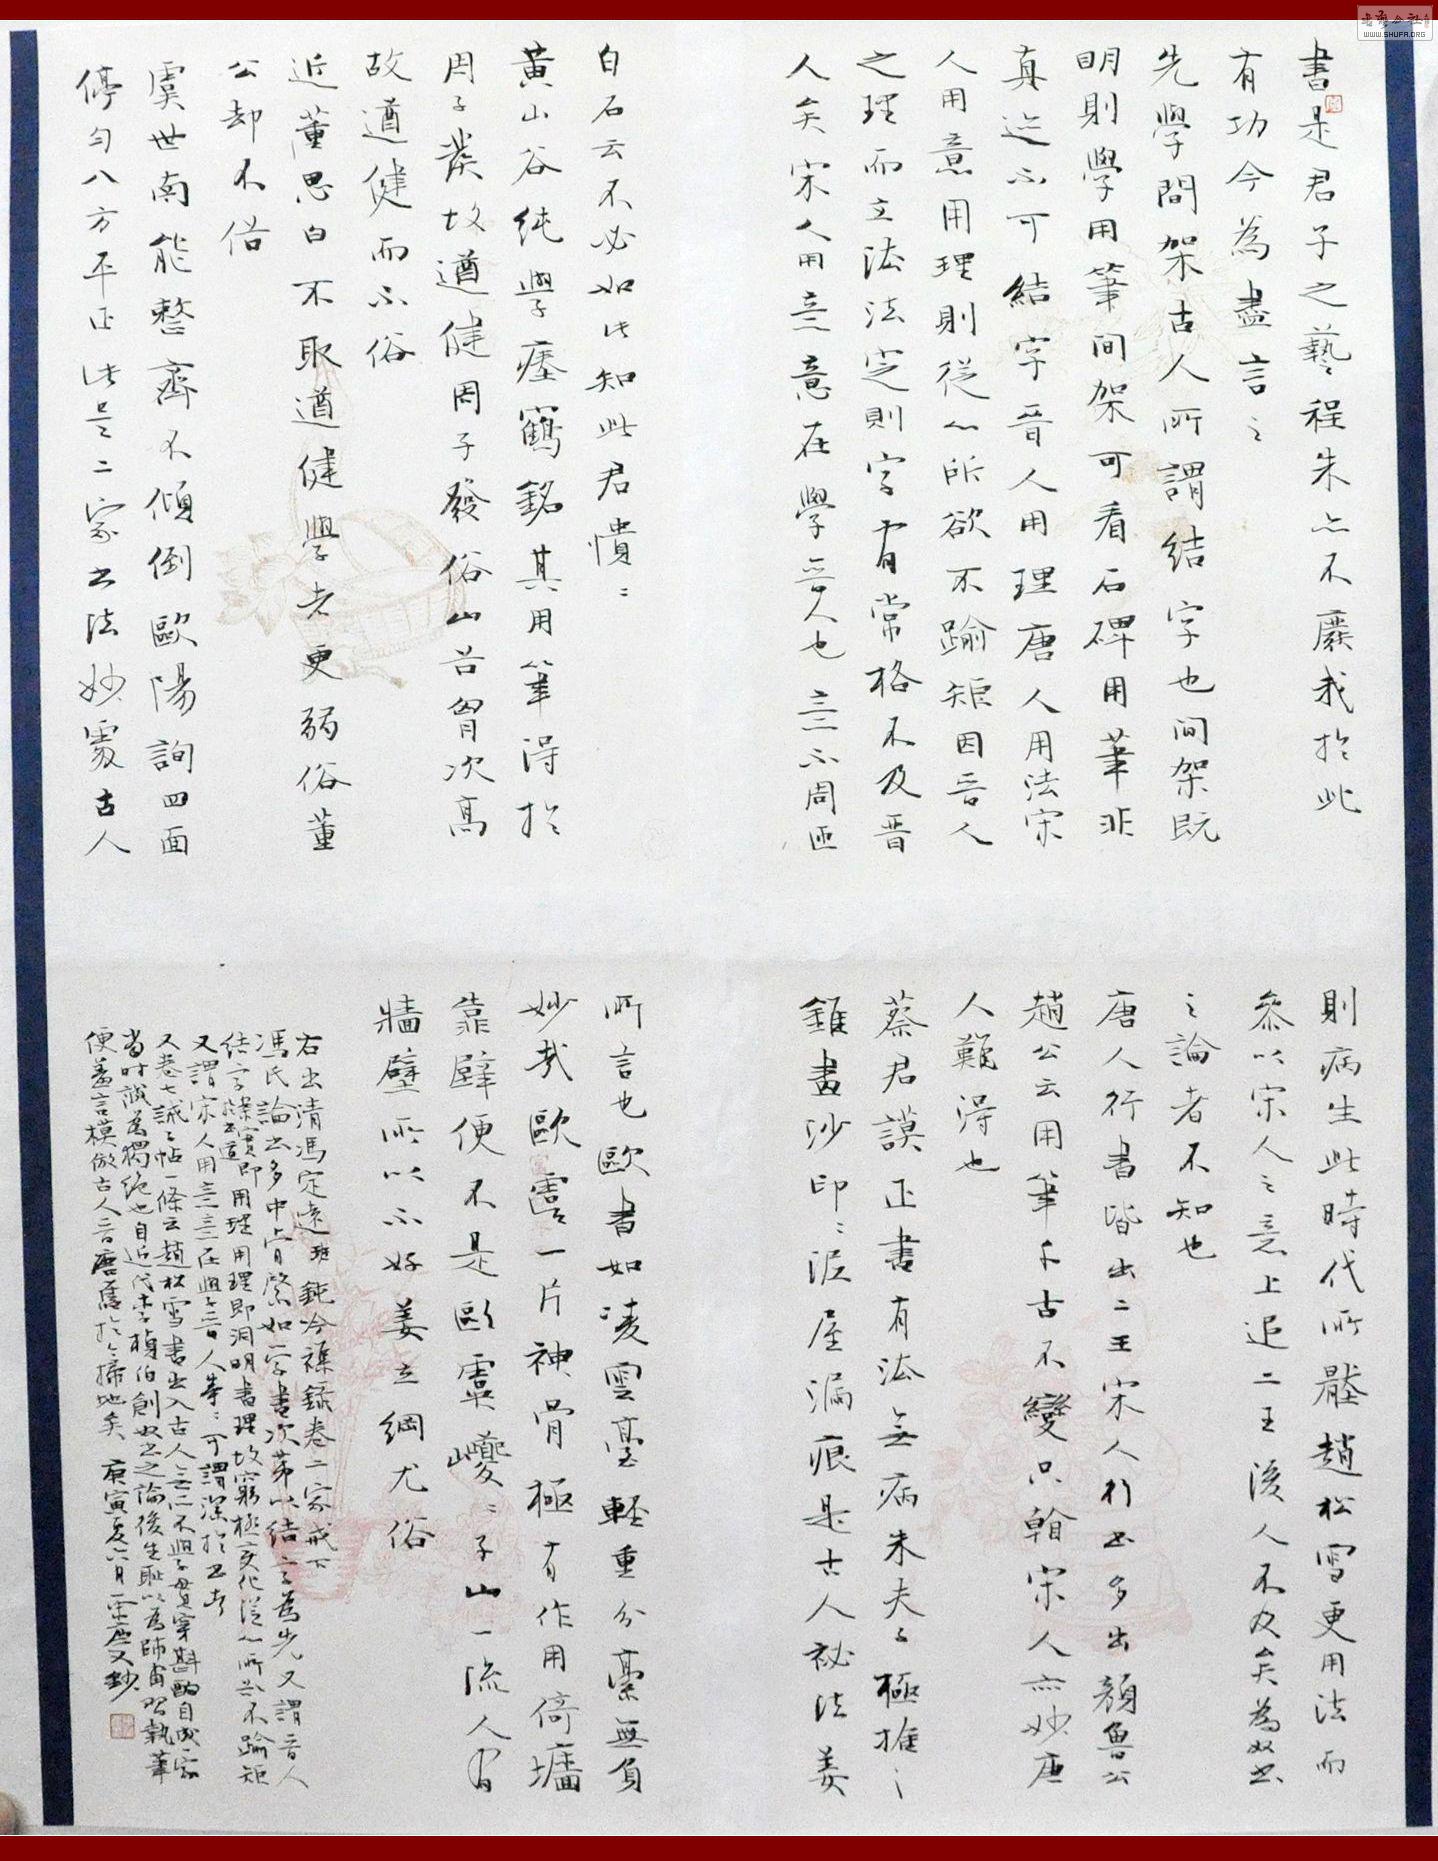 書是君子之藝程朱亦不廢我於此
有功今為盡言之
先學間架古人所謂結字也間架既
明則學用筆間架可看石碑用筆非
真迹不可結字晉人用理唐人用法宋
人用意用理則從心所欲不踰矩因晉人
之理而立法法定則字有常格不及晉
人矣宋人用意意在學晉人也意不周匝
自石云不必如此知此君憒憒
黃山谷純學瘞鶴銘其用筆得於
周子發故遒健周子發俗山谷胷次高
故遒健而不俗
近董思白不取遒健學者更弱俗董
公却不俗
虞世南能整齊不傾倒歐陽詢四面
停勻八方平正此是二家書法妙處古人
則病生此時代所壓趙松雪更用法而
參以宋人之意上追二王後人不及矣為奴書
之論者不知也
唐人行書皆出二王宋人行書多出顏魯公
趙公云用筆千古不變只翰宋人亦妙唐
人難得也
蔡君謨正書有法無病朱夫子極推之
錐畫沙印印泥屋漏痕是古人祕法姜
所言也歐書如凌雲臺輕重分毫無負
妙哉歐虞一片神骨極有作用倚墻
靠壁便不是歐虞巙巙子山一流人有
牆壁所以不好姜立綱尤俗
右出清馮定遠班鈍吟雜錄卷二家戒下
馮氏論書多中肯綮如字書次第以結字為先又謂晉人
結字用理即洞明書理故窮極變化從心所欲不踰矩
又謂宋人用意意在學晉人等等可謂深於書者
又卷七誡子帖一條云趙松雪書出入古人無所不學貫穿斟酌自成一家
當時誠為獨絕也自近代李楨伯創奴書之論後生恥以為師甫習執筆
便羞言模倣古人晉唐舊法於今掃地矣 庚寅夏六月又鈔
WWW.SHUFA.ORG